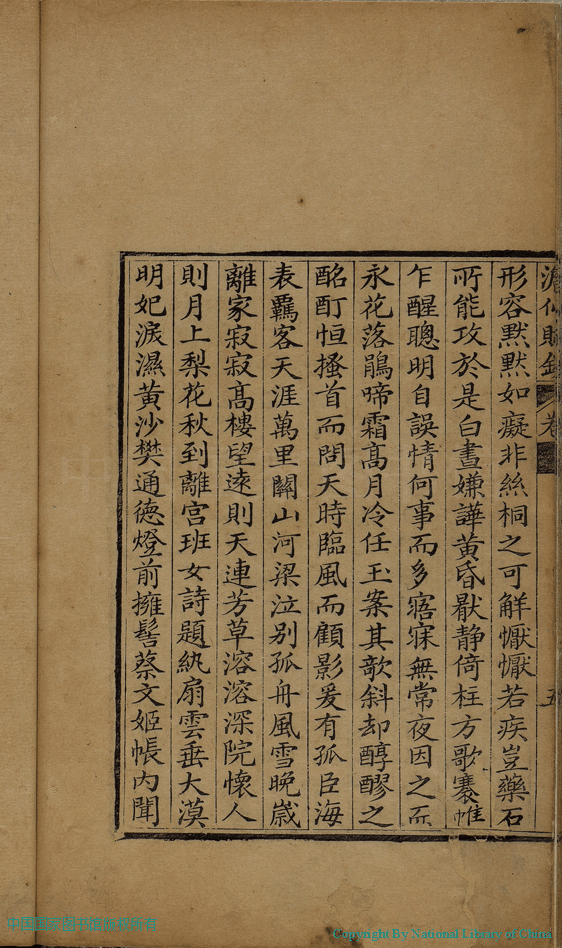 澹仙賦鈔 卷 五
形容黙黙如癡非絲桐之可觧懨懨若疾豈藥石
所能攻於是白晝嫌譁黄昏厭静倚柱方歌褰帷
乍醒聰明自誤情何事而多寤寐無常夜因之而
永花落鵑啼霜髙月冷任玉案其欹斜却醇醪之
酩酊恒搔首而問天時臨風而顧影爰有孤臣海
表羈客天涯萬里關山河梁泣别孤舟風雪晚嵗
離家寂寂髙樓望逺則天連芳草溶溶深院懷人
則月上梨花秋到離宫班女詩題紈扇雲垂大漠
明妃淚濕黄沙樊通徳燈前擁髻蔡文姬帳内聞
Copyright By National Library of China